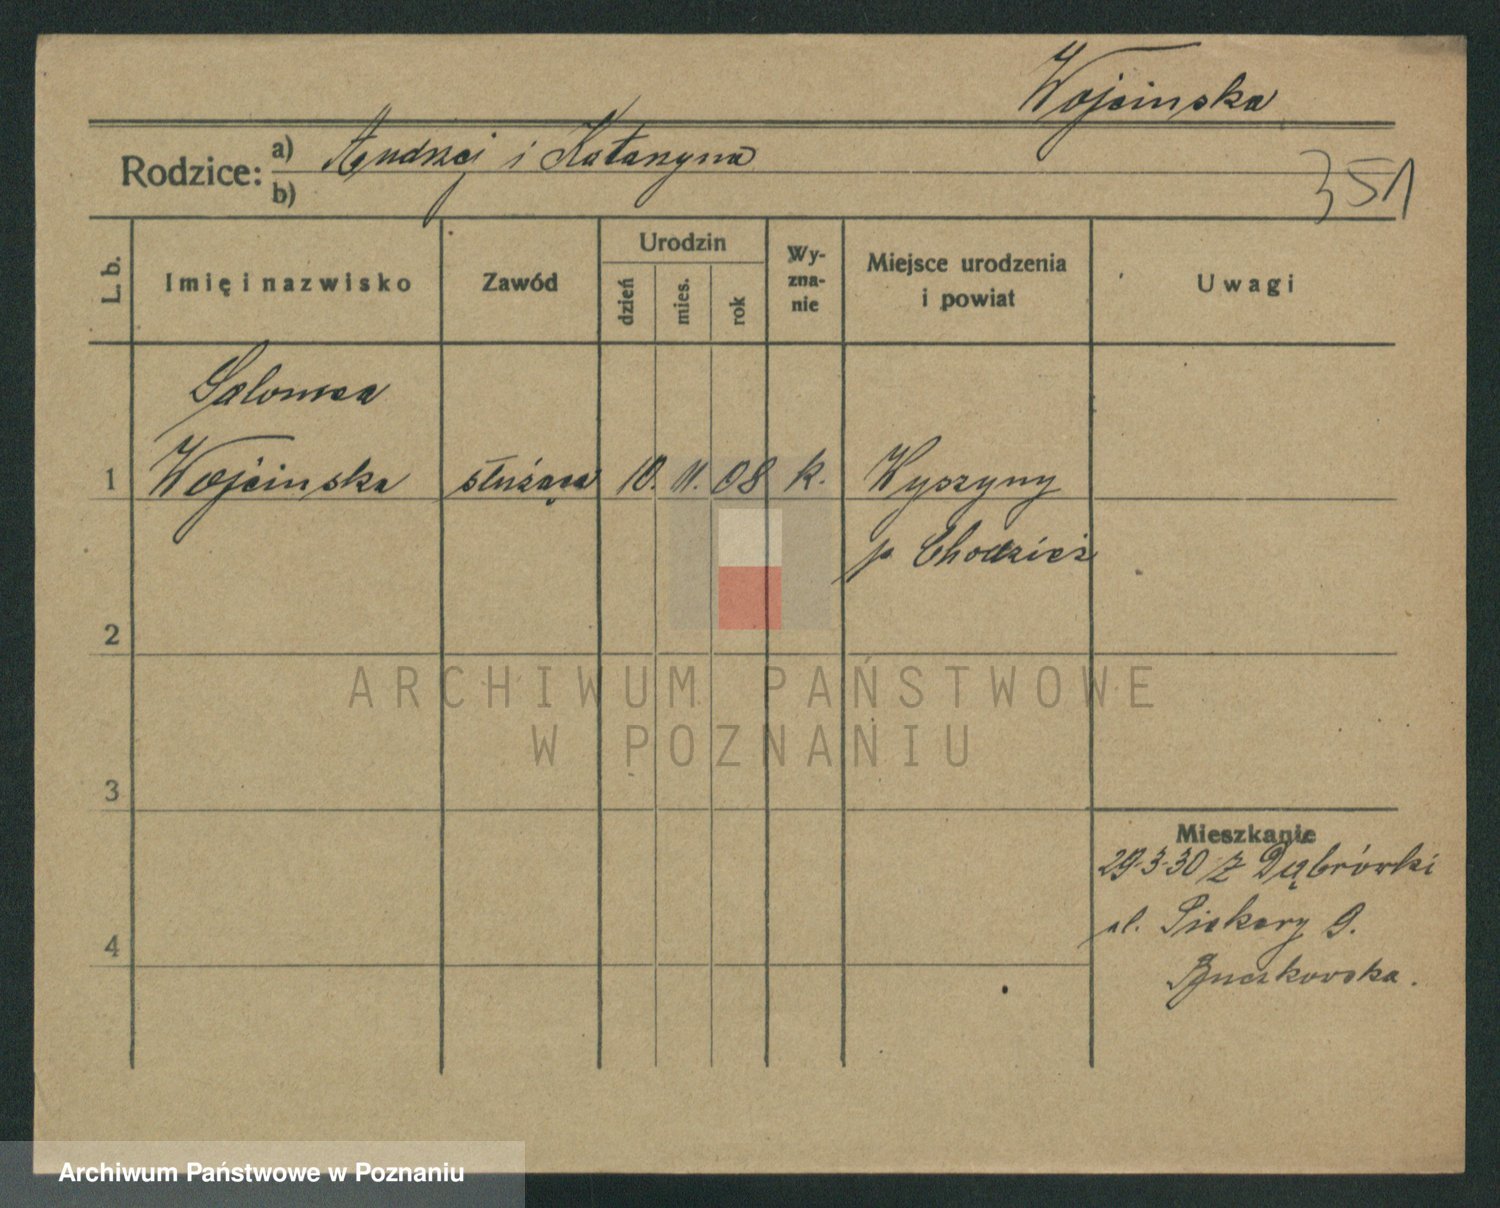 Wojcinska
Rodzice: a) Andrzej i Katarzyna
b)
351
L. b. Imię i nazwisko Zawód Urodzin dzień mies. rok Wyzna-nie Miejsce urodzenia i powiat Uwagi
Salomea
1 Wojcinska służąca 10. 11. 08 k. Wyszyny
p Chodzież
2
ARCHIWUM PAŃSTWOWE
W POZNANIU
3
Mieszkanie
29-3-30 z Dąbrówki
ul. Piekary 9.
4
Buczkowska.
Archiwum Państwowe w Poznaniu